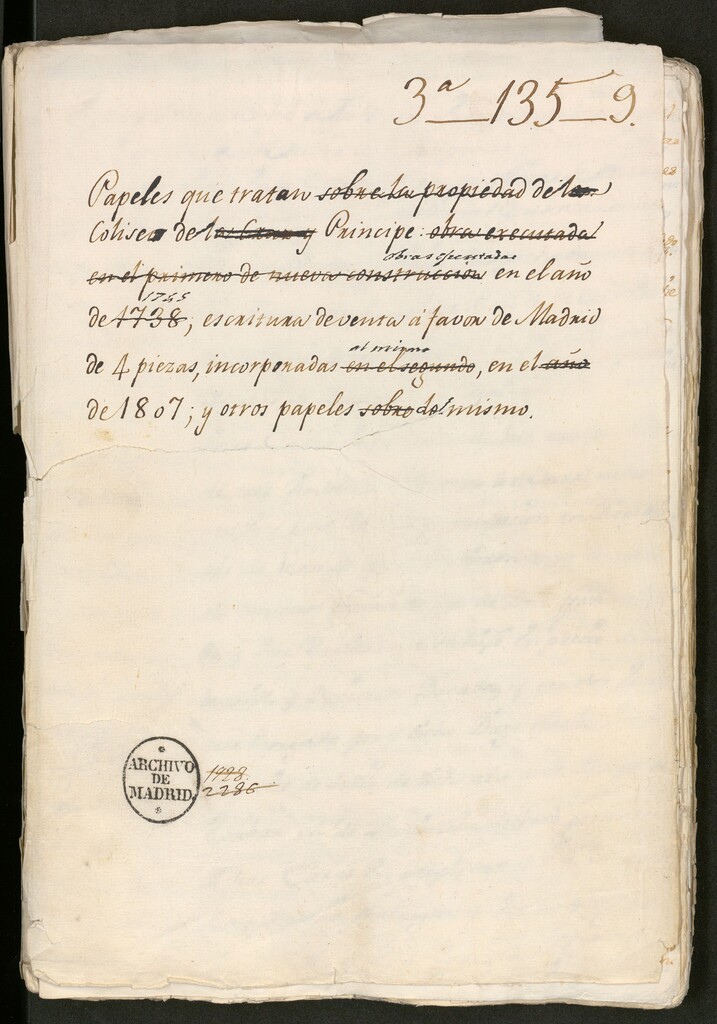 3ª 135 9.
Papeles que tratan sobre la propiedad de los
Coliseo de la Cruz y Principe: obra executada
obras ejecutadas
en el primero de nueva construccion en el año
1745
de 1738; escritura de venta á favor de Madrid
al mismo
de 4 piezas, incorporadas en el segundo, en el año
de 1807; y otros papeles sobre lo mismo.
ARCHIVO
DE
MADRID
1998
2286